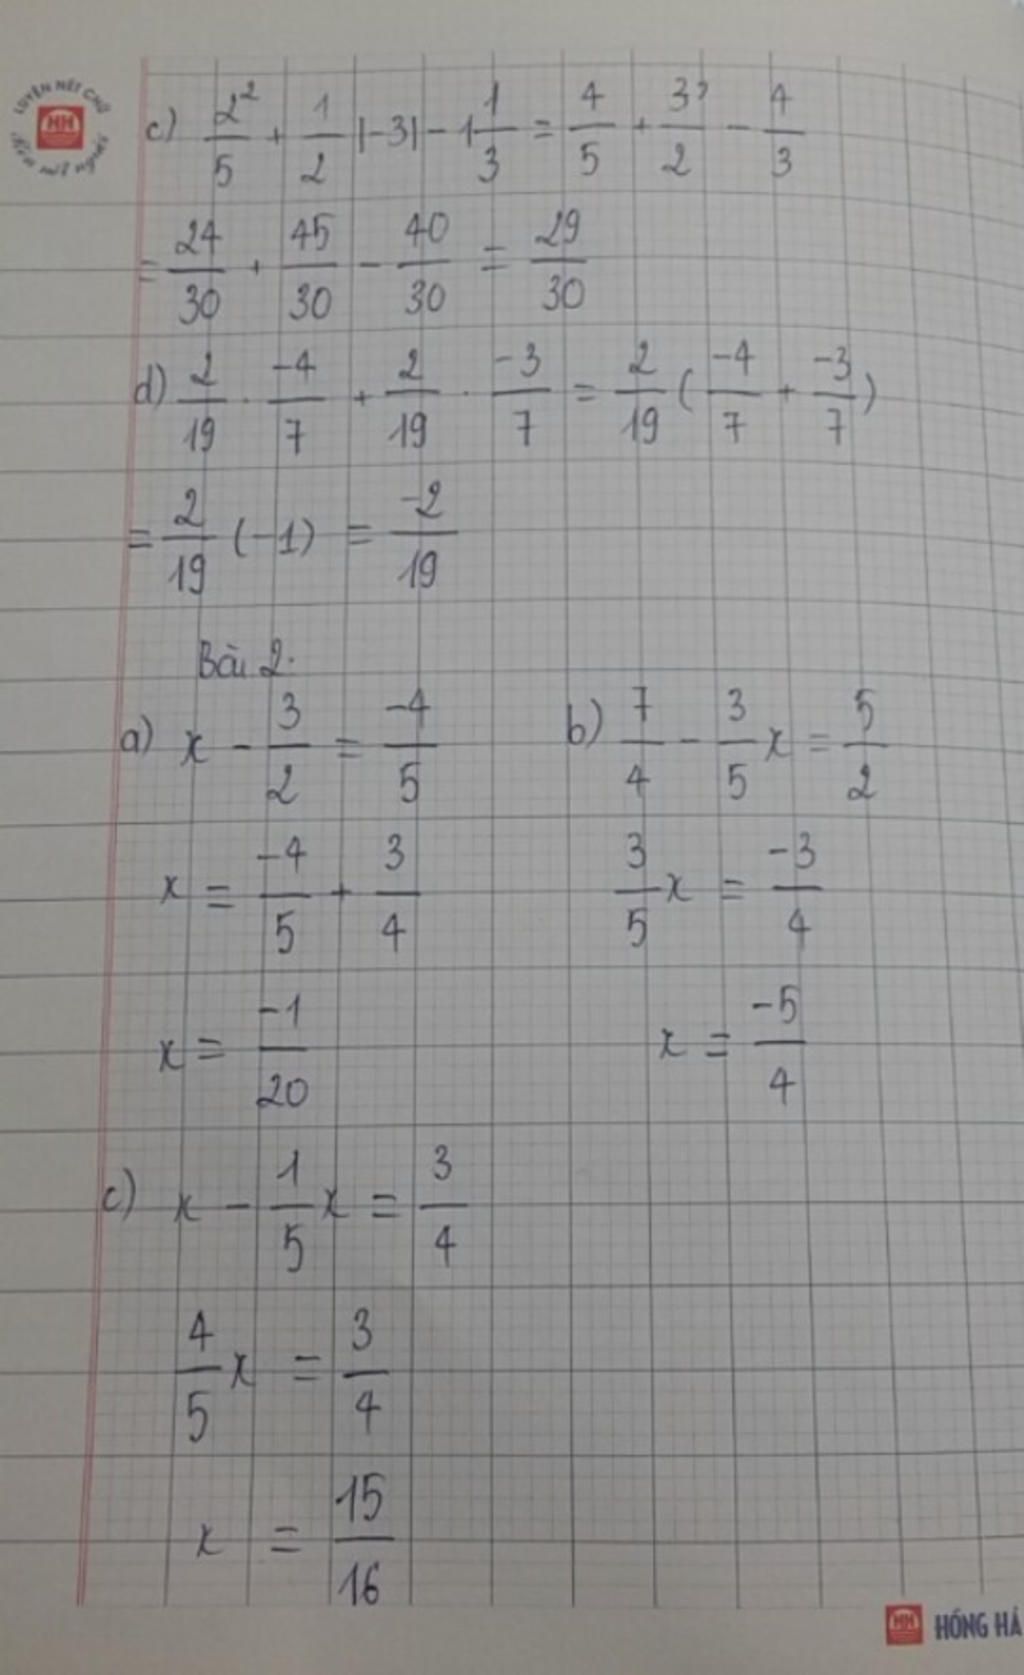 LUYỆN NÉT CHỮ
HH
Rèn nết người
c) 2²/5 + 1/2 |-3| - 1 1/3 = 4/5 + 3/2 - 4/3
= 24/30 + 45/30 - 40/30 = 29/30
d) 2/19 . -4/7 + 2/19 . -3/7 = 2/19 (-4/7 + -3/7)
= 2/19 (-1) = -2/19
Bài 2.
a) x - 3/2 = -4/5
x = -4/5 + 3/4
x = -1/20
b) 7/4 - 3/5 x = 5/2
3/5 x = -3/4
x = -5/4
c) x - 1/5 x = 3/4
4/5 x = 3/4
x = 15/16
HH HỒNG HÀ